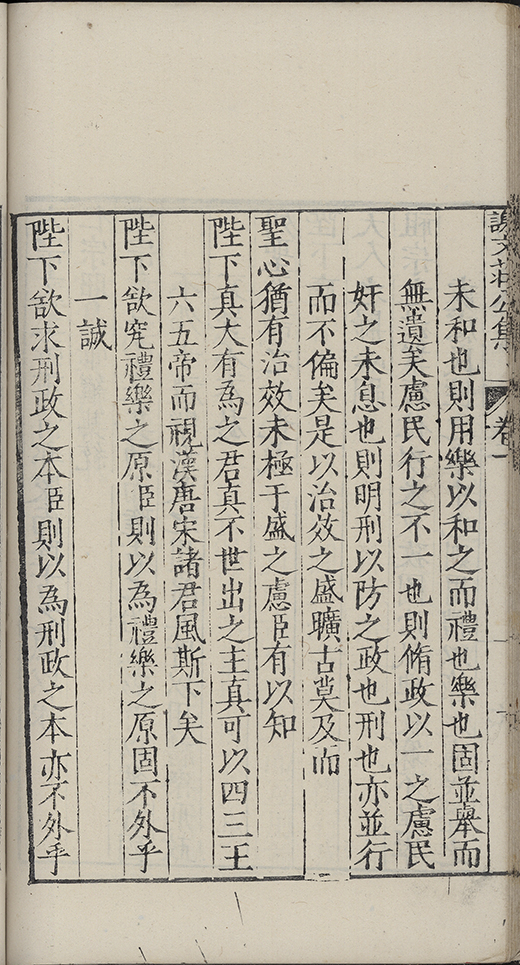 謝文莊公集 卷一
未和也則用樂以和之而禮也樂也固並舉而
無遺矣慮民行之不一也則脩政以一之慮民
奸之未息也則明刑以防之政也刑也亦並行
而不偏矣是以治效之盛曠古莫及而
聖心猶有治效未極于盛之慮臣有以知
陛下真大有為之君真不世出之主真可以四三王
六五帝而視漢唐宋諸君風斯下矣
陛下欲究禮樂之原臣則以為禮樂之原固不外乎
一誠
陛下欲求刑政之本臣則以為刑政之本亦不外乎